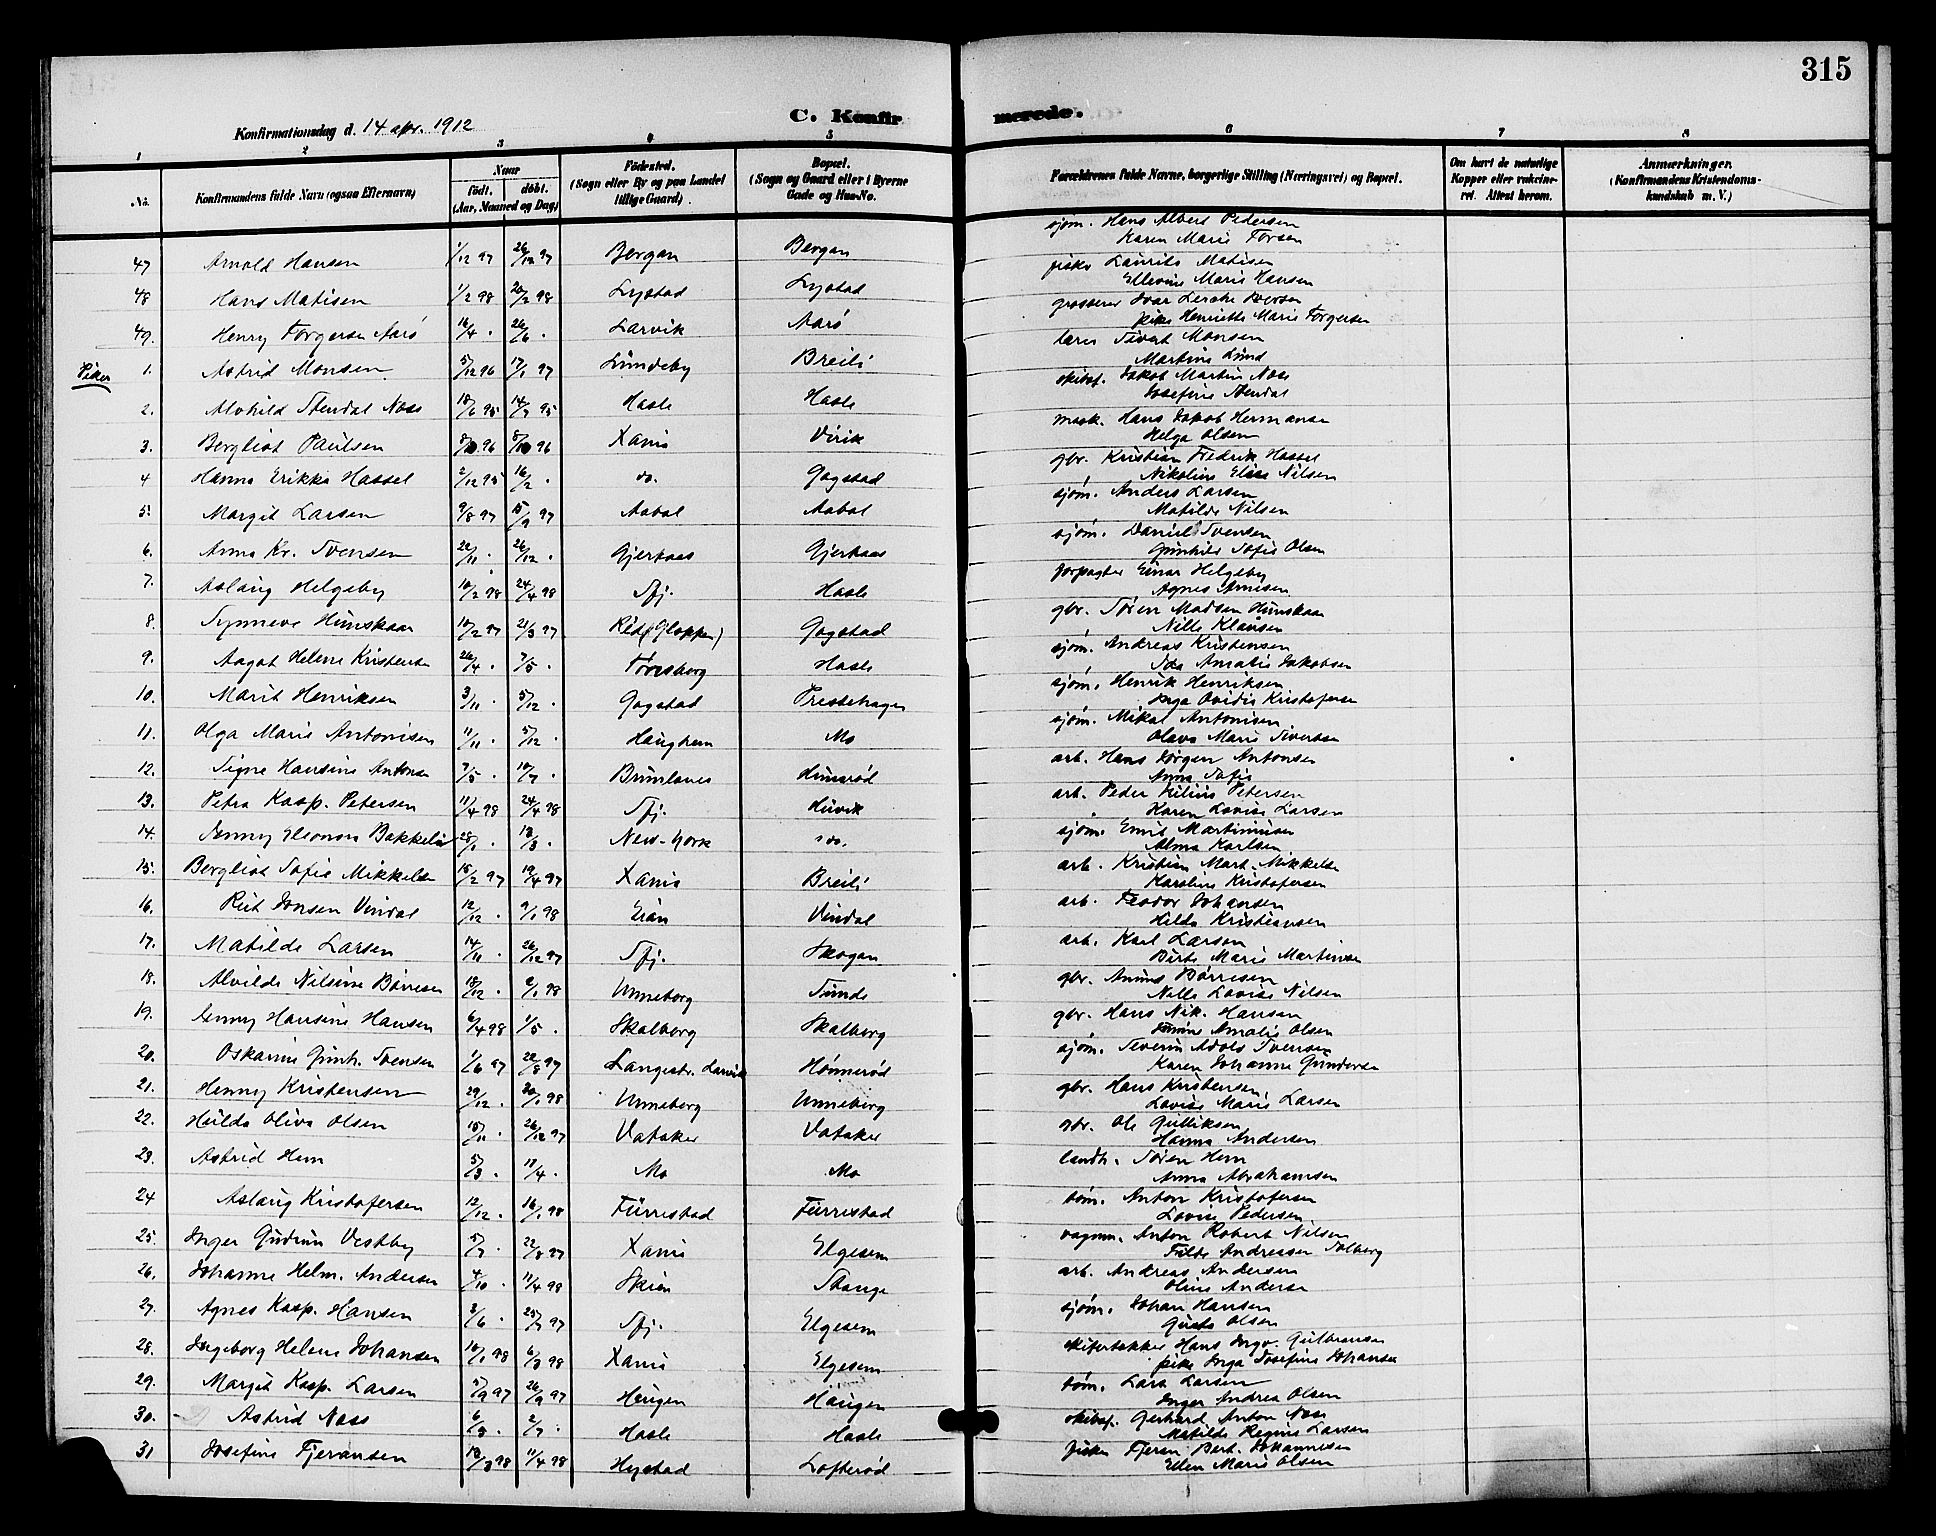 315
C. Konfirmerede.
Konfirmationsdag d. 14 apr. 1912
1 2 3 4 5 6 7 8
No. Konfirmandens fulde Navn (ogsaa Efternavn) Naar født. døbt. (Aar, Maaned og Dag) Fødested. (Sogn eller By og paa Landet tillige Gaard). Bopæl. (Sogn og Gaard eller i Byerne Gade og Hus-No. Forældrenes fulde Navne, borgerlige Stilling (Næringsvei) og Bopæl. Om havt de naturlige Kopper eller vakcineret. Attest herom. Anmærkninger. (Konfirmandens Kristendomskundskab m. V.)
47 Arnold Hansen 1/12 97 26/12 97 Bergan Bergan sjøm. Hans Albert Pedersen
Karen Marie
48 Hans Matisen 1/2 98 20/2 98 Lystad Lystad fisker Laurits Matisen
Ellevine Marie Hansen
49. Henry Torgersen Aarø 16/4 . 26/6 . Larvik Aarø grosserer Ivar Lerche Iversen
pike Henriette Marie Torgersen
Piker
1. Astrid Monsen 5/12 96 17/1 97 Lundeby Breili lærer Sivert Monsen
Martine Lund
2. Alvhild Stendal Næss 18/6 95 14/7 95 Hasle Hasle skibsf. Jakob Martin Næss
Josefine Stendal
3. Bergliot Paulsen Xania Virik mask. Hans Jakob Hermansen
Helga Olsen
4 Hanna Erikka Hassel 2/12 95 16/2 . do. Gogstad gbr. Kristian Fredrik Hassel
Nikoline Elise Nilsen
5. Margit Larsen 9/8 97 15/9 97 Aabol Aabol sjøm. Anders Larsen
Matilde Nilsen
6. Anna Kr. Svensen 22/11 . 26/12 . Gjerkaas Gjerkaas sjøm. Daniel Svensen
Gunhild Sofie Olsen
7. Aslaug Helgeby 10/2 98 24/4 98 Sfj. Hasle forpagter Einar Helgeby
Agnes Arnesen
8. Synneve Hunskaar 10/2 97 21/3 97 Gogstad gbr. Søren Madsen Hunskaar
Nille Klausen
9. Aagot Helene Kristensen 26/4 . 7/5 . Tønsberg Hasle sjøm. Andreas Kristensen
Ida Amalie Jakobsen
10. Marit Henriksen 3/11 . 5/12 . Gogstad Prestehagen sjøm. Henrik Henriksen
Inga Ovidie Kristofersen
11. Olga Marie Antonisen 11/11 . 5/12 . Haughem Mo sjøm. Mikal Antonisen
Olava Marie Sivertsen
12. Signe Hansine Antonsen 7/5 . 10/7 . Brunlanes Hunsrød arb. Hans Jørgen Antonsen
Anna Sofie
13. Petra Kasp. Petersen 11/4 98 24/4 98 Sfj. Huvik arb. Peder Petersen
Karen Lovise Larsen
14. Jenny Eleonora Bakkeli 28/1 . 13/3 . New-York do. sjøm. Emil Martinusen
Alma Karlsen
15. Bergliot Sofie Mikkelsen 15/2 97 19/4 97 Xania Breili arb. Kristian Mart. Mikkelsen
Karoline Kristofersen
16. Rut Jonsen Vindal 12/12 . 9/1 98 Vindal arb. Teodor Johansen
Hilda Kristiansen
17. Matilde Larsen 14/11 . 26/12 97 Sfj. Skogan arb. Karl Larsen
Berte Marie Martinsen
18. Alvilde Nilsine Børresen 18/12 . 9/1 98 Unneberg Sunde gbr. Børresen
Nille Lovise Nilsen
19. Jenny Hansine Hansen 6/4 98 1/5 . Skalberg Skalberg gbr. Hans Nik. Hansen
Amalie Olsen
20. Oskarine Gunh. Svensen 1/6 97 22/8 97 Langestr. Larvik Hønnerød sjøm. Severin Adolf Svensen
Karen Johanne Gundersen
21. Henny Kristensen 29/12 . 30/1 98 Unneberg Unneberg gbr. Hans Kristensen
Lovise Marie Larsen
22. Hulda Oliva Olsen 15/11 . 26/12 97 Vataker Vataker gbr. Ole Gulliksen
Hanna Andersen
23. Astrid Hem 5/3 . 11/4 . Mo Mo landh. Søren Hem
Anna Abrahamsen
24 Aslaug Kristofersen 12/12 . 16/1 98 Furrestad Furrestad tøm. Anton Kristofersen
Lovise Pedersen
25. Inger Gudrun Vestby 5/7 . 22/8 97 Xania Elgesem vognm. Anton Robert Nilsen
Andreassen Solberg
26. Johanne Helm. Andersen 4/10 . 11/4 98 Skien Stange arb. Andreas Andersen
Oline Andersen
27. Agnes Kasp. Hansen 3/6 . 25/7 97 Sfj. Elgesem sjøm. Johan Hansen
Olsen
28. Ingeborg Helene Johansen 16/1 98 6/3 98 Xania Elgesem skifertækker Hans Ingv. Gulbransen
pike Inga Josefine Johansen
29. Margit Kasp. Larsen 5/9 97 26/9 97 Haugen Haugen tøm. Lars Larsen
Inger Andrea Olsen
30. Astrid Næss Hasle Hasle skibsf. Gerhard Anton Næss
Matilde Regine Larsen
31 Josefine Fjeransen 13/3 98 11/4 98 Hystad Lofterød fisker Fjeran Bert. Johannesen
Ellen Marie Olsen